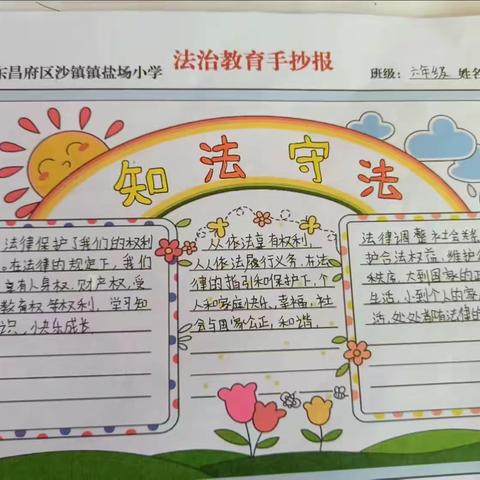 东昌府区沙镇镇盐场小学 法治教育手抄报 班级: 六年级 姓名
知法守法
法律保护了我们的权利
。在法律的规定下，我们
享有人身权、财产权、受
教育权等权利，学习知
识，快乐成长
人人依法享有权利，
人人依法履行义务，在法
律的指引和保护下，个
人和家庭快乐、幸福，社
会与国家公正，和谐，
法律调整社会关
护合法权益，维护公
秩序，大到国家的正
生活，小到个人的家
活，处处都有法律的